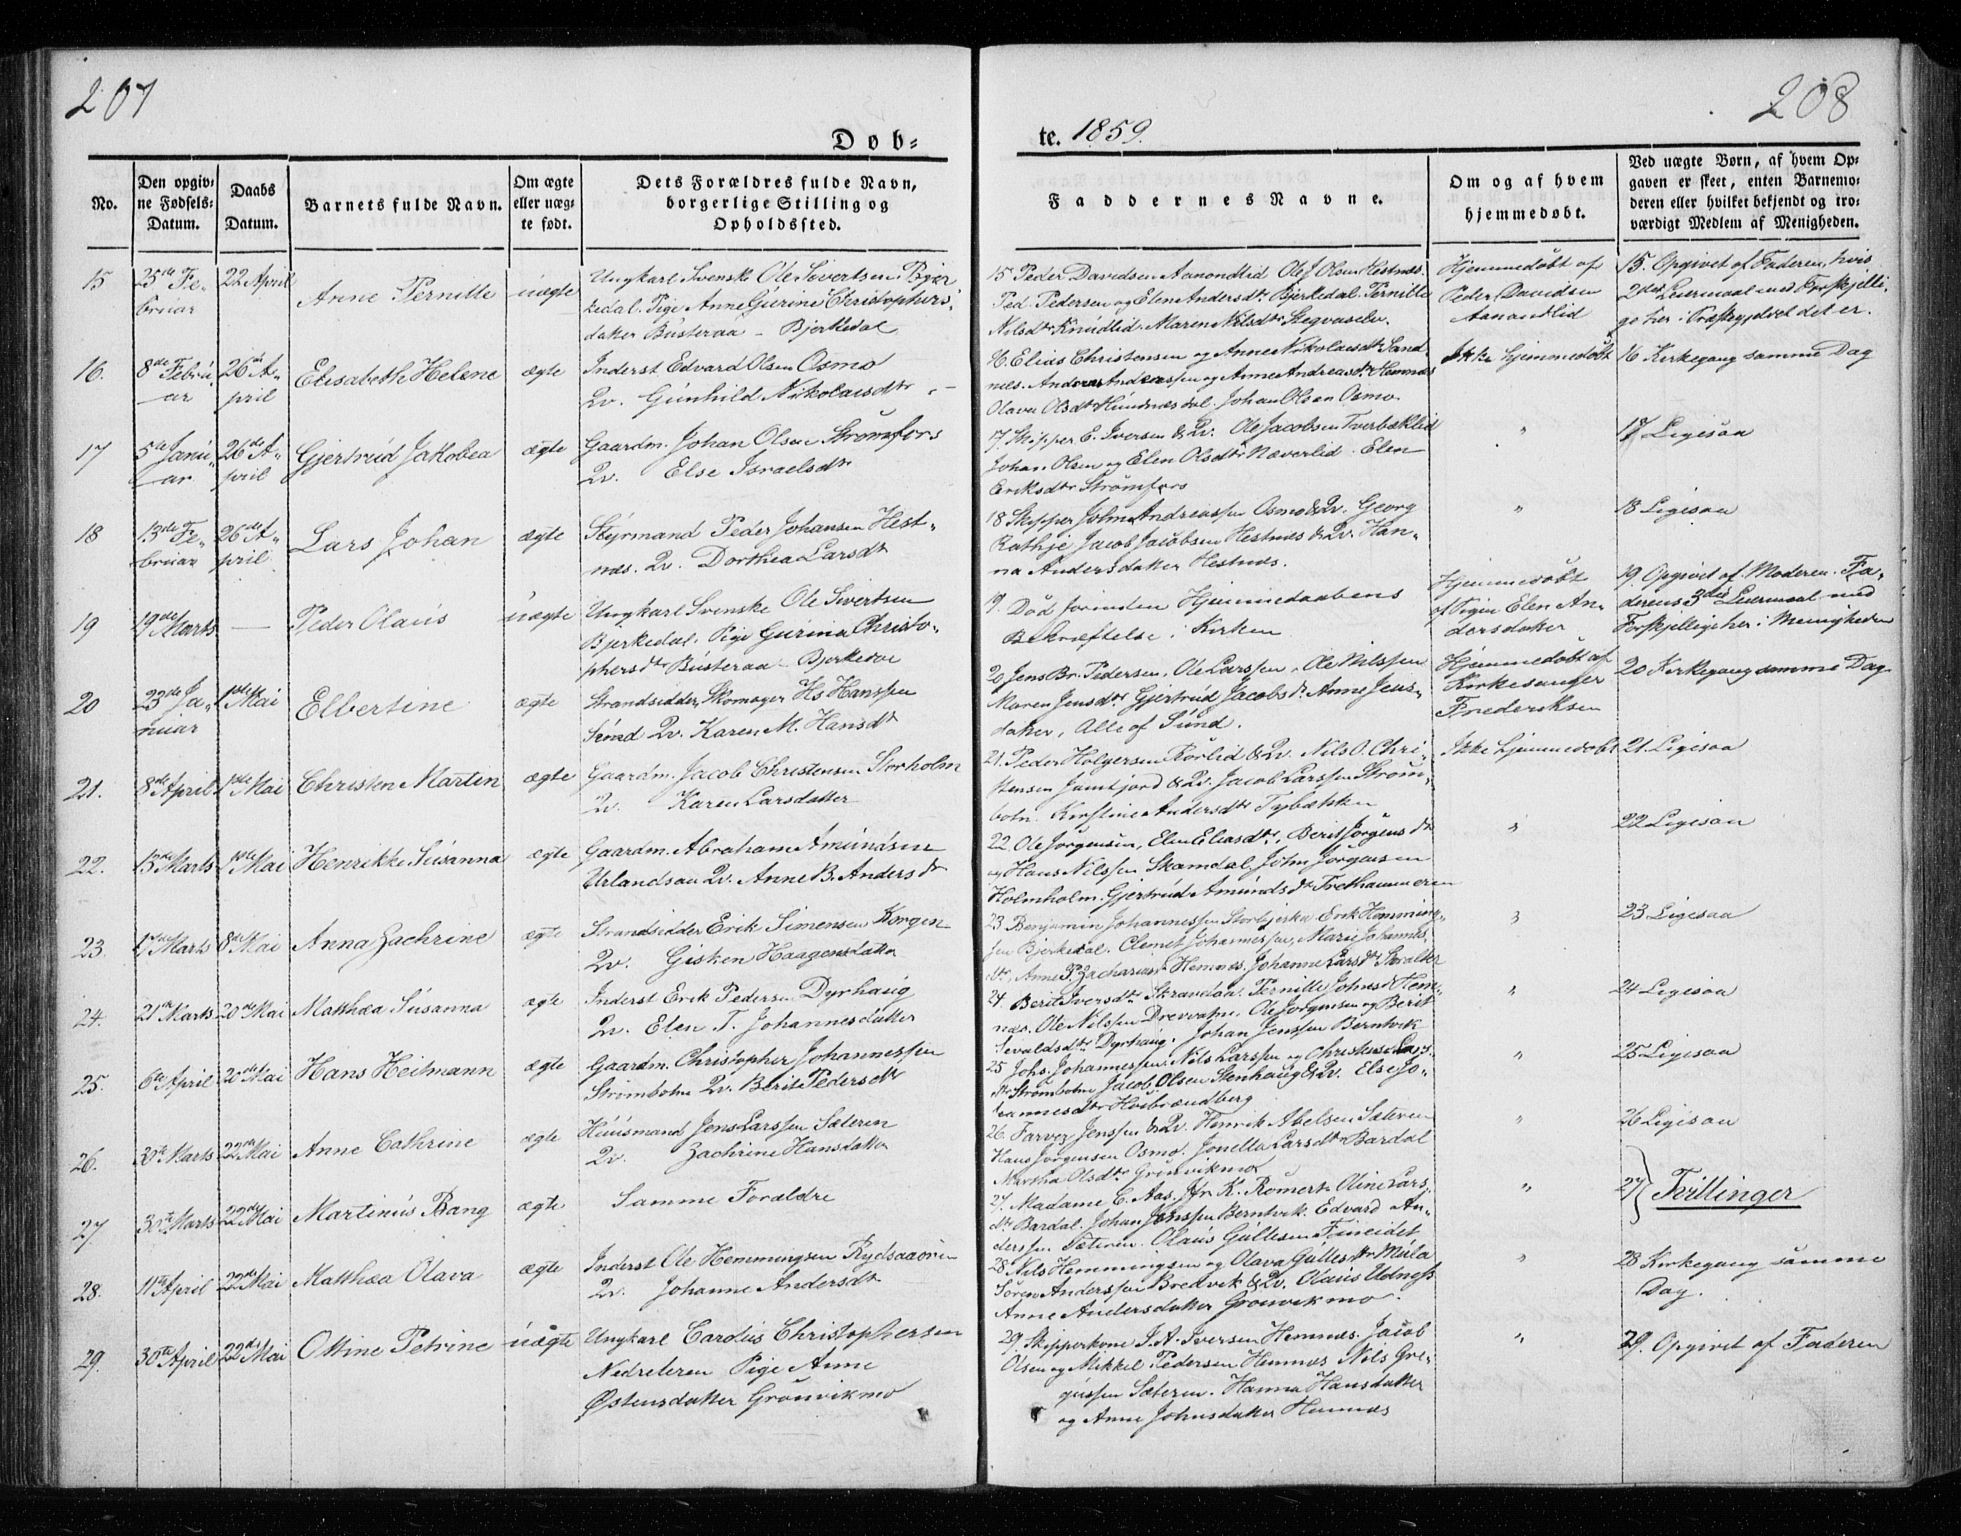 207
208
Døb-
te. 1859.
No.
Den opgiv-
ne Fødsels-
Datum.
Daabs
Datum.
Barnets fulde Navn.
Om ægte
eller uæg-
te født.
Dets Forældres fulde Navn,
borgerlige Stilling og
Opholdssted.
Faddernes Navne.
Om og af hvem
hjemmedøbt.
Ved uægte Børn, af hvem Op-
gaven er skeet, enten Barnemo-
deren eller hvilket bekjendt og tro-
værdigt Medlem af Menigheden.
15
25de Fe-
bruar
22 April
Anne Pernille
uægte
Ungkarl Svenske Ole Sivertsen Bjer
kedal. Pige Anne Gurine Christophers-
datter Busteraa - Bjerkedal
15 Peder Davidsen Aanondlid Ole J Olsen Hestnæs.
Ped. Pedersen og Elen Andersdtr Bjerkedal. Pernille
Nilsdtr Knudlid. Maren Nilsdtr
Hjemmedøbt af
Peder Davidsen
Aanondlid
15. Opgivet af Faderen, hvis
2det Leiermaal med Forskjelli-
ge her i Præstegjeldet det er.
16.
8de Febru-
ar
26 A-
pril
Elisabeth Helene
ægte
Inderst Edvard Olsen Osmo
Qv. Gunhild Nikolaisdtr
16 Elias Christensen og Anne Nikolaisdtr Sand
næs. Anders Andreassen og Anne Andreasdtr Hemnæs
Olava Olsdtr Hundnæsdal. Johan Olsen Osmo.
Ikke hjemmedøbt
16 Kirkegang samme Dag
17
5te Janu-
ar
26de A-
pril
Gjertrud Jakobea
ægte
Gaardm. Johan Olsen Strømfors
Qv. Else Israelsdtr
17 Skipper E. Iversen & Qv. Ole Jacobsen Tverbæklid
Johan Olsen og Elen Olsdtr Næverlid. Elen
Eriksdtr Strømfors
"
17 Ligesaa
18
13de Fe-
bruar
26de A-
pril
Lars Johan
ægte
Styrmand Peder Johansen Hest-
næs. Qv. Dorthea Larsdtr
18 Skipper John Andreassen Osmo & Qv. Georg
Rathje Jacob Jacobsen Hestnæs & Qv. Han-
na Andersdatter Hestnæs.
"
18 Ligesaa
19
19de Marts
—
Peder Olaus
uægte
Ungkarl Svenske Ole Sivertsen
Bjerkedal, Pige Gurina Christo-
phersdtr Busteraa - Bjerkedal
19. Død forinden Hjemmedaabens
Bekræftelse i Kirken
Hjemmedøbt
af Pigen Elen An-
dersdatter
19. Opgivet af Moderen. Fa-
derens 3die Leiermaal med
Forskjellige her i Menigheden
20
23de Ja-
nuar
1ste Mai
Elbertine
ægte
Strandsidder, Skomager Hs Hanssen
Sund Qv. Karen M. Hansdtr
20 Jens Br. Pedersen, Ole Larssen, Ole Nilssen
Maren Jensdtr Gjertrud Jacobsdtr Anne Jens-
datter, Alle af Sund.
Hjemmedøbt af
Kirkesanger
Frederiksen
20 Kirkegang samme Dag
21.
8de April
1ste Mai
Christen Martin
ægte
Gaardm. Jacob Christensen Storholm
Qv. Karen Larsdatter
21. Peder Holgersen Rørlid & Qv. Nils O. Chri-
stensen Jamtjord & Qv. Jacob Larssen Strøm-
botn. Kirstine Andersdtr Tybækken
Ikke hjemmedøbt
21. Ligesaa
22.
15de Marts
1ste Mai
Henrikke Susanna
ægte
Gaardm. Abraham Amundsen
Urlandsaa Qv. Anne B. Andersdtr
22 Ole Jørgensen, Elen Eliasdtr, Berit Jørgensdtr
og Hans Nilssen Skamdal, John Jørgensen
Holmholm. Gjertrud Amundsdtr Trethammeren
"
22 Ligesaa
23.
Marts
8de Mai
Anna Zachrine
ægte
Strandsidder Erik Simensen Korgen
Qv. Gisken Haagensdatter
23 Benjamin Johannessen Storbjerka Erik Hemming-
sen Bjerkedal. Clemet Johannessen, Marie Johannes-
dtr, Anne P. Zachariasdtr Hemnes. Johanne Larsdtr
"
23 Ligesaa
24.
21de Marts
20de Mai
Matthæa Susanna
ægte
Inderst Erik Pedersen Dyrhaug
Qv. Elen T. Johannesdatter
24. Berit Iversdtr Skravdaa. Pernille Johnsd Hem-
næs. Ole Nilssen Drevvatne, Ole Jørgensen og Berit
Sevaldsdtr Dyrhaug. Johan Jenssen Berntvik
"
24 Ligesaa
25.
6te April
20de Mai
Hans Heitmann
ægte
Gaardm. Christopher Johannessen
Strømbotn Qv. Berit Pedersdtr
25 Johs. Johannessen, Nils Larssen og Christense Lars-
dtr Strømbotn Jacob Olsen Stenhaug & Qv. Else Jo-
hannesdtr Hvibrændberg
"
25 Ligesaa
26.
30te Marts
22de Mai
Anne Cathrine
ægte
Huusmand Jens Larssen Sæteren
Qv. Zachrine Hansdatter
26. Farver Jenssen & Qv. Henrik Abelsen Sæteren
Hans Jørgensen Osmo. Jonella Larsdtr Bardal
Martha Olsdtr Grønvikmo
"
26 Ligesaa
27.
30te Marts
22de Mai
Martinus Bang
ægte
Samme Forældre
27. Madame C. Aas. Jfr K. Rømer. Oline Lars-
dtr Bardal. Johan Jenssen Berntvik. Edvard An-
derssen Sæteren. Olaus Gullesen Finneidet
"
27 } Tvillinger
28.
11te April
22de Mai
Matthæa Olava
ægte
Inderst Ole Hemmingsen Rydsaaøren
Qv. Johanne Andersdtr
28. Nils Hemmingsen og Olava Gullesdtr Mula
Søren Anderssen Bredvik & Qv. Olaus Utnes
Anne Andersdatter Grønvikmo.
"
28 Kirkegang samme
Dag.
29.
30te April
22de Mai
Ottine Petrine
uægte
Ungkarl Carolus Christophersen
Nedreleren Pige Anne
Østensdatter Grønvikmo
29. Skipperkone I. A. Iversen Hemnæs. Jacob
Olsen og Mikkel Pedersen Hemnæs Nils Gre-
gussen Sæteren. Hanna Hansdatter
og Anne Johnsdatter Hemnæs
"
29. Opgivet af Faderen